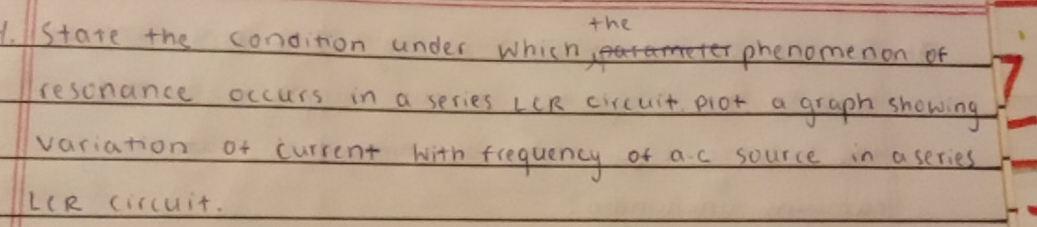 1. State the condition under which the phenomenon of
resonance occurs in a series LCR circuit. Plot a graph showing
variation of current with frequency of a.c source in a series
LCR circuit.